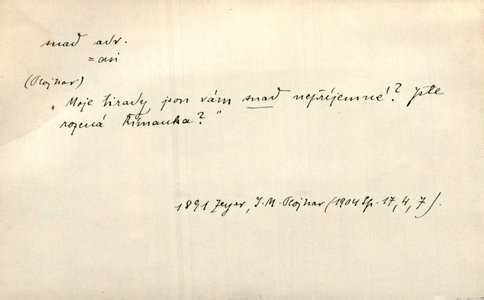 snad adv.
= asi
(Rojnar)
„Moje tirady jsou vám snad nepříjemné!? Jste
rozená Římanka?“
1891 Zeyer, J. M. Plojhar (1904 Sp. 17, 4, 7).